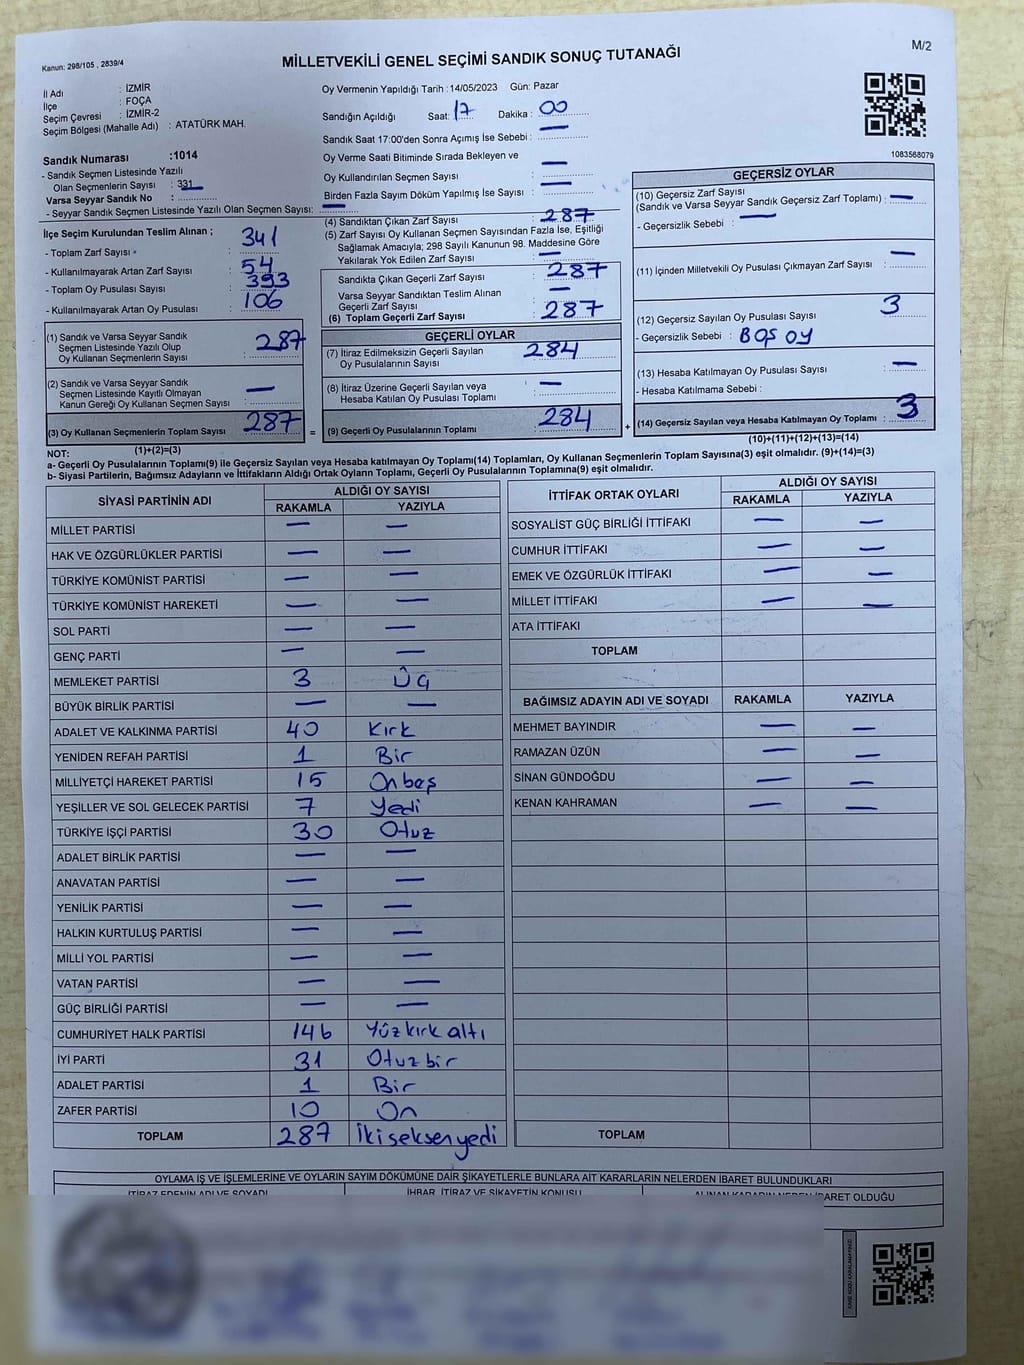 Kanun: 298/105 , 2839/4
MİLLETVEKİLİ GENEL SEÇİMİ SANDIK SONUÇ TUTANAĞI
M/2
İl Adı : İZMİR
İlçe : FOÇA
Seçim Çevresi : İZMİR-2
Seçim Bölgesi (Mahalle Adı) : ATATÜRK MAH.
Oy Vermenin Yapıldığı Tarih :14/05/2023 Gün: Pazar
Sandığın Açıldığı Saat: 17 Dakika : 00
Sandık Saat 17:00'den Sonra Açımış İse Sebebi : —
Oy Verme Saati Bitiminde Sırada Bekleyen ve
Oy Kullandırılan Seçmen Sayısı : —
Birden Fazla Sayım Döküm Yapılmış İse Sayısı : —
1083568079
Sandık Numarası :1014
- Sandık Seçmen Listesinde Yazılı
Olan Seçmenlerin Sayısı : 331
Varsa Seyyar Sandık No :
- Seyyar Sandık Seçmen Listesinde Yazılı Olan Seçmen Sayısı: —
İlçe Seçim Kurulundan Teslim Alınan ;
- Toplam Zarf Sayısı : 341
- Kullanılmayarak Artan Zarf Sayısı : 54
- Toplam Oy Pusulası Sayısı : 393
- Kullanılmayarak Artan Oy Pusulası : 106
(1) Sandık ve Varsa Seyyar Sandık
Seçmen Listesinde Yazılı Olup
Oy Kullanan Seçmenlerin Sayısı : 287
(2) Sandık ve Varsa Seyyar Sandık
Seçmen Listesinde Kayıtlı Olmayan
Kanun Gereği Oy Kullanan Seçmen Sayısı : —
(3) Oy Kullanan Seçmenlerin Toplam Sayısı : 287
(1)+(2)=(3)
(4) Sandıktan Çıkan Zarf Sayısı : 287
(5) Zarf Sayısı Oy Kullanan Seçmen Sayısından Fazla İse, Eşitliği
Sağlamak Amacıyla; 298 Sayılı Kanunun 98. Maddesine Göre
Yakılarak Yok Edilen Zarf Sayısı : —
Sandıkta Çıkan Geçerli Zarf Sayısı : 287
Varsa Seyyar Sandıktan Teslim Alınan
Geçerli Zarf Sayısı : —
(6) Toplam Geçerli Zarf Sayısı : 287
GEÇERLİ OYLAR
(7) İtiraz Edilmeksizin Geçerli Sayılan
Oy Pusulasının Sayısı : 284
(8) İtiraz Üzerine Geçerli Sayılan veya
Hesaba Katılan Oy Pusulası Toplamı : —
= (9) Geçerli Oy Pusulalarının Toplamı : 284 +
GEÇERSİZ OYLAR
(10) Geçersiz Zarf Sayısı
(Sandık ve Varsa Seyyar Sandık Geçersiz Zarf Toplamı) : —
- Geçersizlik Sebebi : —
(11) İçinden Milletvekili Oy Pusulası Çıkmayan Zarf Sayısı : —
(12) Geçersiz Sayılan Oy Pusulası Sayısı : 3
- Geçersizlik Sebebi : BOŞ OY
(13) Hesaba Katılmayan Oy Pusulası Sayısı : —
- Hesaba Katılmama Sebebi :
(14) Geçersiz Sayılan veya Hesaba Katılmayan Oy Toplamı : 3
(10)+(11)+(12)+(13)=(14)
NOT:
a- Geçerli Oy Pusulalarının Toplamı(9) ile Geçersiz Sayılan veya Hesaba katılmayan Oy Toplamı(14) Toplamları, Oy Kullanan Seçmenlerin Toplam Sayısına(3) eşit olmalıdır. (9)+(14)=(3)
b- Siyasi Partilerin, Bağımsız Adayların ve İttifakların Aldığı Ortak Oyların Toplamı, Geçerli Oy Pusulalarının Toplamına(9) eşit olmalıdır.
SİYASİ PARTİNİN ADI ALDIĞI OY SAYISI
RAKAMLA YAZIYLA
MİLLET PARTİSİ — —
HAK VE ÖZGÜRLÜKLER PARTİSİ — —
TÜRKİYE KOMÜNİST PARTİSİ — —
TÜRKİYE KOMÜNİST HAREKETİ — —
SOL PARTİ — —
GENÇ PARTİ — —
MEMLEKET PARTİSİ 3 Üç
BÜYÜK BİRLİK PARTİSİ — —
ADALET VE KALKINMA PARTİSİ 40 Kırk
YENİDEN REFAH PARTİSİ 1 Bir
MİLLİYETÇİ HAREKET PARTİSİ 15 Onbeş
YEŞİLLER VE SOL GELECEK PARTİSİ 7 Yedi
TÜRKİYE İŞÇİ PARTİSİ 30 Otuz
ADALET BİRLİK PARTİSİ — —
ANAVATAN PARTİSİ — —
YENİLİK PARTİSİ — —
HALKIN KURTULUŞ PARTİSİ — —
MİLLİ YOL PARTİSİ — —
VATAN PARTİSİ — —
GÜÇ BİRLİĞİ PARTİSİ — —
CUMHURİYET HALK PARTİSİ 146 Yüzkırk altı
İYİ PARTİ 31 Otuzbir
ADALET PARTİSİ 1 Bir
ZAFER PARTİSİ 10 On
TOPLAM 287 İkiseksenyedi
İTTİFAK ORTAK OYLARI ALDIĞI OY SAYISI
RAKAMLA YAZIYLA
SOSYALİST GÜÇ BİRLİĞİ İTTİFAKI — —
CUMHUR İTTİFAKI — —
EMEK VE ÖZGÜRLÜK İTTİFAKI — —
MİLLET İTTİFAKI — —
ATA İTTİFAKI
TOPLAM
BAĞIMSIZ ADAYIN ADI VE SOYADI RAKAMLA YAZIYLA
MEHMET BAYINDIR — —
RAMAZAN ÜZÜN — —
SİNAN GÜNDOĞDU — —
KENAN KAHRAMAN — —
TOPLAM
OYLAMA İŞ VE İŞLEMLERİNE VE OYLARIN SAYIM DÖKÜMÜNE DAİR ŞİKAYETLERLE BUNLARA AİT KARARLARIN NELERDEN İBARET BULUNDUKLARI
İTİRAZ EDENİN ADI VE SOYADI İHBAR, İTİRAZ VE ŞİKAYETİN KONUSU ALINAN KARARIN NEDEN İBARET OLDUĞU